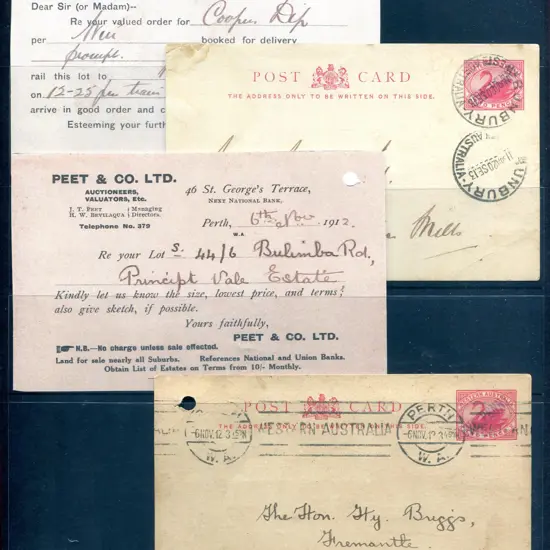 Dear Sir (or Madam)--
Re your valued order for Cooper Dip
per Nieu booked for delivery
prompt.
rail this lot to
on 12-25 pm train
arrive in good order and c
Esteeming your furth
POST CARD
THE ADDRESS ONLY TO BE WRITTEN ON THIS SIDE.
BUNBURY
AUSTRALIA
BUNBURY
Mills
PEET & CO. LTD.
AUCTIONEERS,
VALUATORS, Etc.
J. T. PEET : Managing
H. W. BEVILAQUA : Directors.
Telephone No. 379
46 St. George's Terrace,
NEXT NATIONAL BANK,
Perth, 6th Nov 1912.
W.A.
Re your Lot s. 44/6 Bulimba Rd,
Princept Vale Estate
Kindly let us know the size, lowest price, and terms;
also give sketch, if possible.
Yours faithfully,
PEET & CO. LTD.
N.B.—No charge unless sale effected.
Land for sale nearly all Suburbs. References National and Union Banks.
Obtain List of Estates on Terms from 10/- Monthly.
POST CARD
THE ADDRESS ONLY TO BE WRITTEN ON THIS SIDE.
WESTERN AUSTRALIA
PERTH
6 NOV. 12
W.A.
The Hon. Hy. Briggs,
Fremantle.